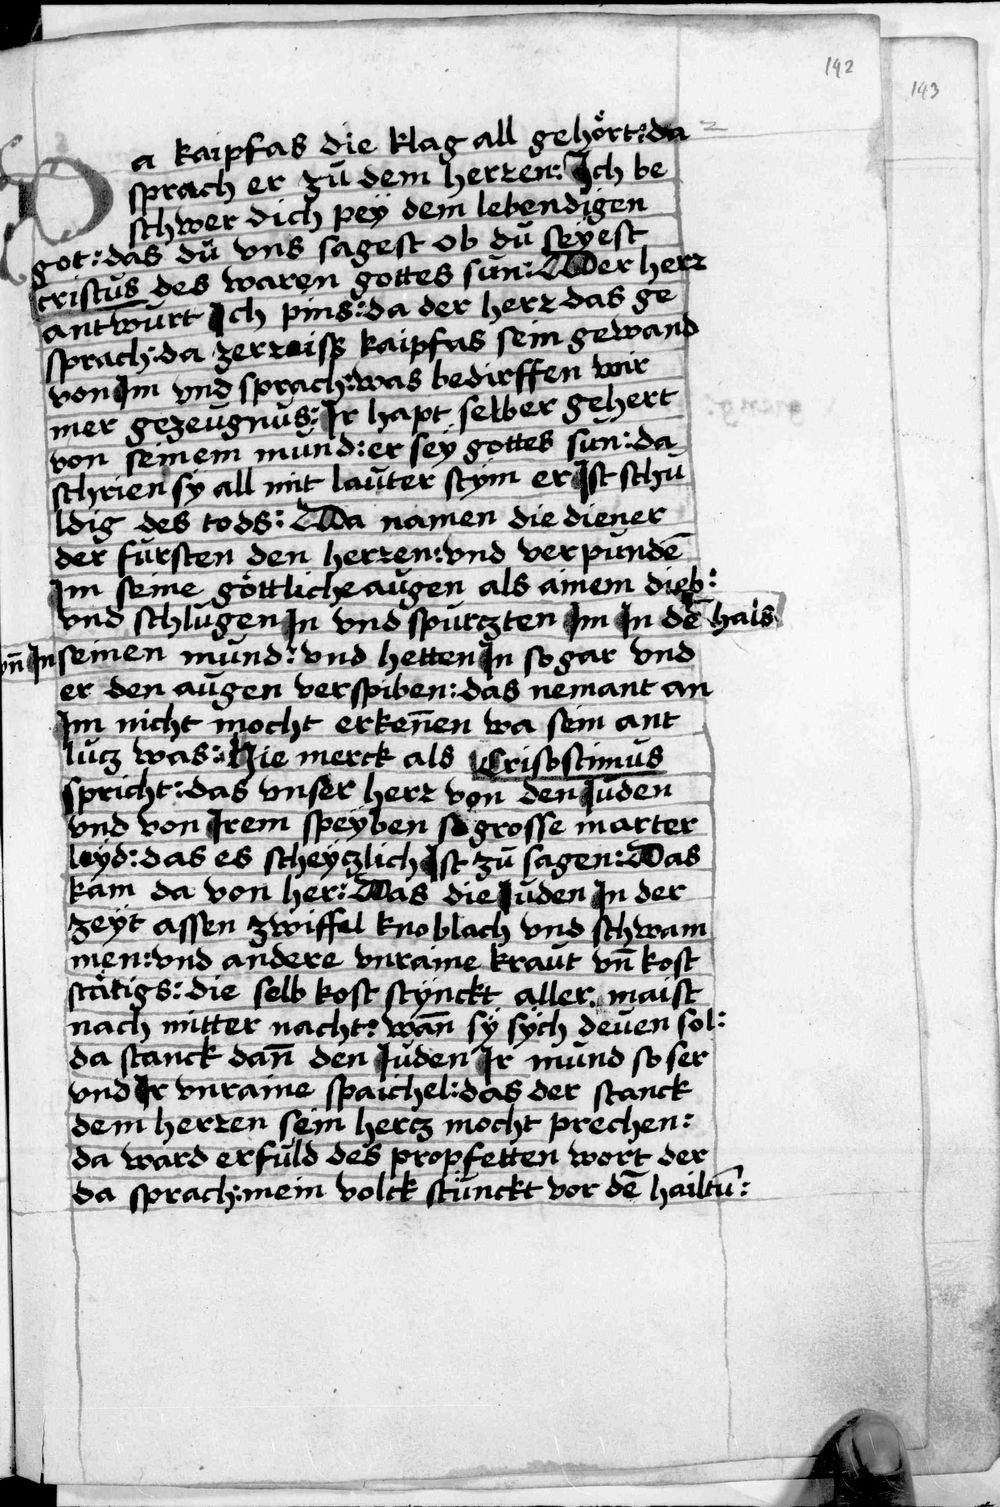 142
143
Da kaipfas die klag all gehört: da
sprach er zu dem herren: Ich be
schwer dich peÿ dem lebendigen
got: das dü vns sagest ob dü seÿest
cristus des waren gottes sun: Der herr
antwürt Ich pins: da der herr das ge
sprach: da zerraiss kaipfas sein gewand
von Im vnd sprach: was bedirffen wir
mer gezeugnus: Ir hapt selber gehert
von seinem mund: er seÿ gottes sün: da
schrien sÿ all mit lauter stÿm er Ist schu
ldig des tods: Da namen die diener
der fürsten den herren: vnd verpundē
Im seine göttliche augen als ainem dieb:
vnd schlugen In vnd spürczten Im In dē hals
vn̄ In seinen mund: vnd hetten In so gar vnd
er den augen verspiben: das nemant an
Im nicht mocht erken̄en wa sein ant
lücz was: Hie merck als Crisostimus
spricht: das vnser herr von den Iuden
vnd von Irem speÿben so grosse marter
leyd: das es scheÿczlich Ist zü sagen: Das
kam da von her: Das die Iuden In der
zeÿt assen zwiffel knoblach vnd schwam
men: vnd andere vnraine kraut vn̄ kost
stätigs: die selb kost stÿnckt aller maist
nach mitter nacht: wan̄ sÿ sÿch deuen sol:
da stanck dan̄ den Iuden Ir mund so ser
vnd Ir vnraine spaichel: das der stanck
dem herren sein hercz mocht prechen:
da ward erfüld des propfetten wort der
da sprach: mein volck stünckt vor dē hailtū: